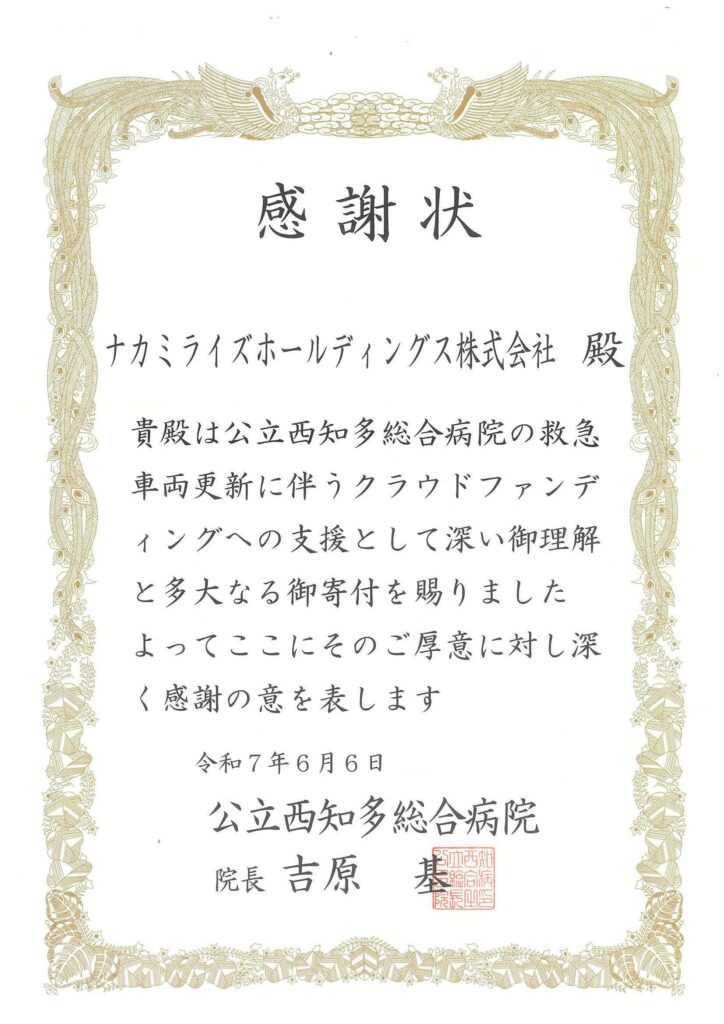 感謝状
ナカミライズホールディングス株式会社 殿
貴殿は公立西知多総合病院の救急
車両更新に伴うクラウドファンデ
ィングへの支援として深い御理解
と多大なる御寄付を賜りました
よってここにそのご厚意に対し深
く感謝の意を表します
令和7年6月6日
公立西知多総合病院
院長 吉原 基